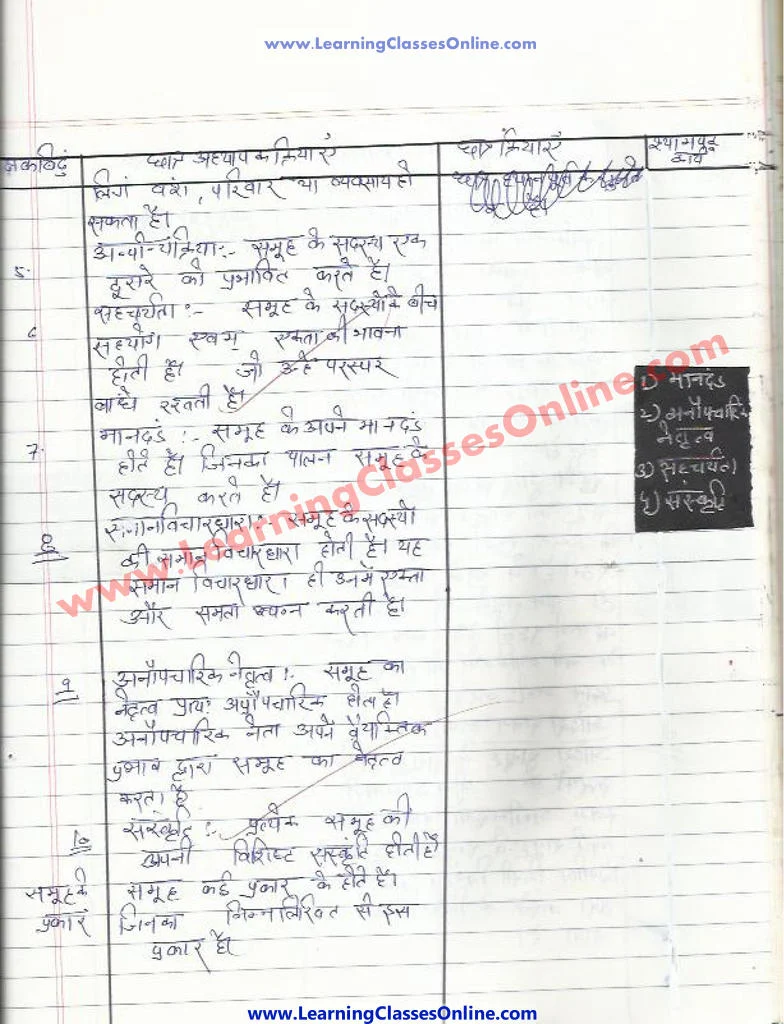 www.LearningClassesOnline.com
छात्र अध्यापक क्रियाएं
छात्र क्रियाएं
श्यामपट्ट
कार्य
लिंग वंश, परिवार या व्यवसाय हो
सकता है।
5. :- समूह के सदस्य एक
दूसरे को प्रभावित करते है।
6 सहचर्यता :- समूह के सदस्यो के बीच
सहयोग एवम् एकता की भावना
होती है। जो उन्हे परस्पर
बांधे रखती है।
7. मानदंड :- समूह के अपने मानदंड
होते है। जिनका पालन समूह के
सदस्य करते है।
8 समानविचारधारा :- समूह के सदस्यो
की समान विचारधारा होती है। यह
समान विचारधारा ही उनमें एकता
और समता करती है।
9 अनौपचारिक नेतृत्व :- समूह का
नेतृत्व होता है।
अनौपचारिक नेता अपने
प्रभाव द्वारा समूह का नेतृत्व
करता है
10 संस्कृति :- प्रत्येक समूह की
अपनी विशिष्ट संस्कृति होती है
समूह के समूह कई प्रकार के होते है।
प्रकार जिनका इस
प्रकार है।
1) मानदंड
2) अनौपचारिक
नेतृत्व
3) सहचर्यता
4) संस्कृति
www.LearningClassesOnline.com
www.LearningClassesOnline.com